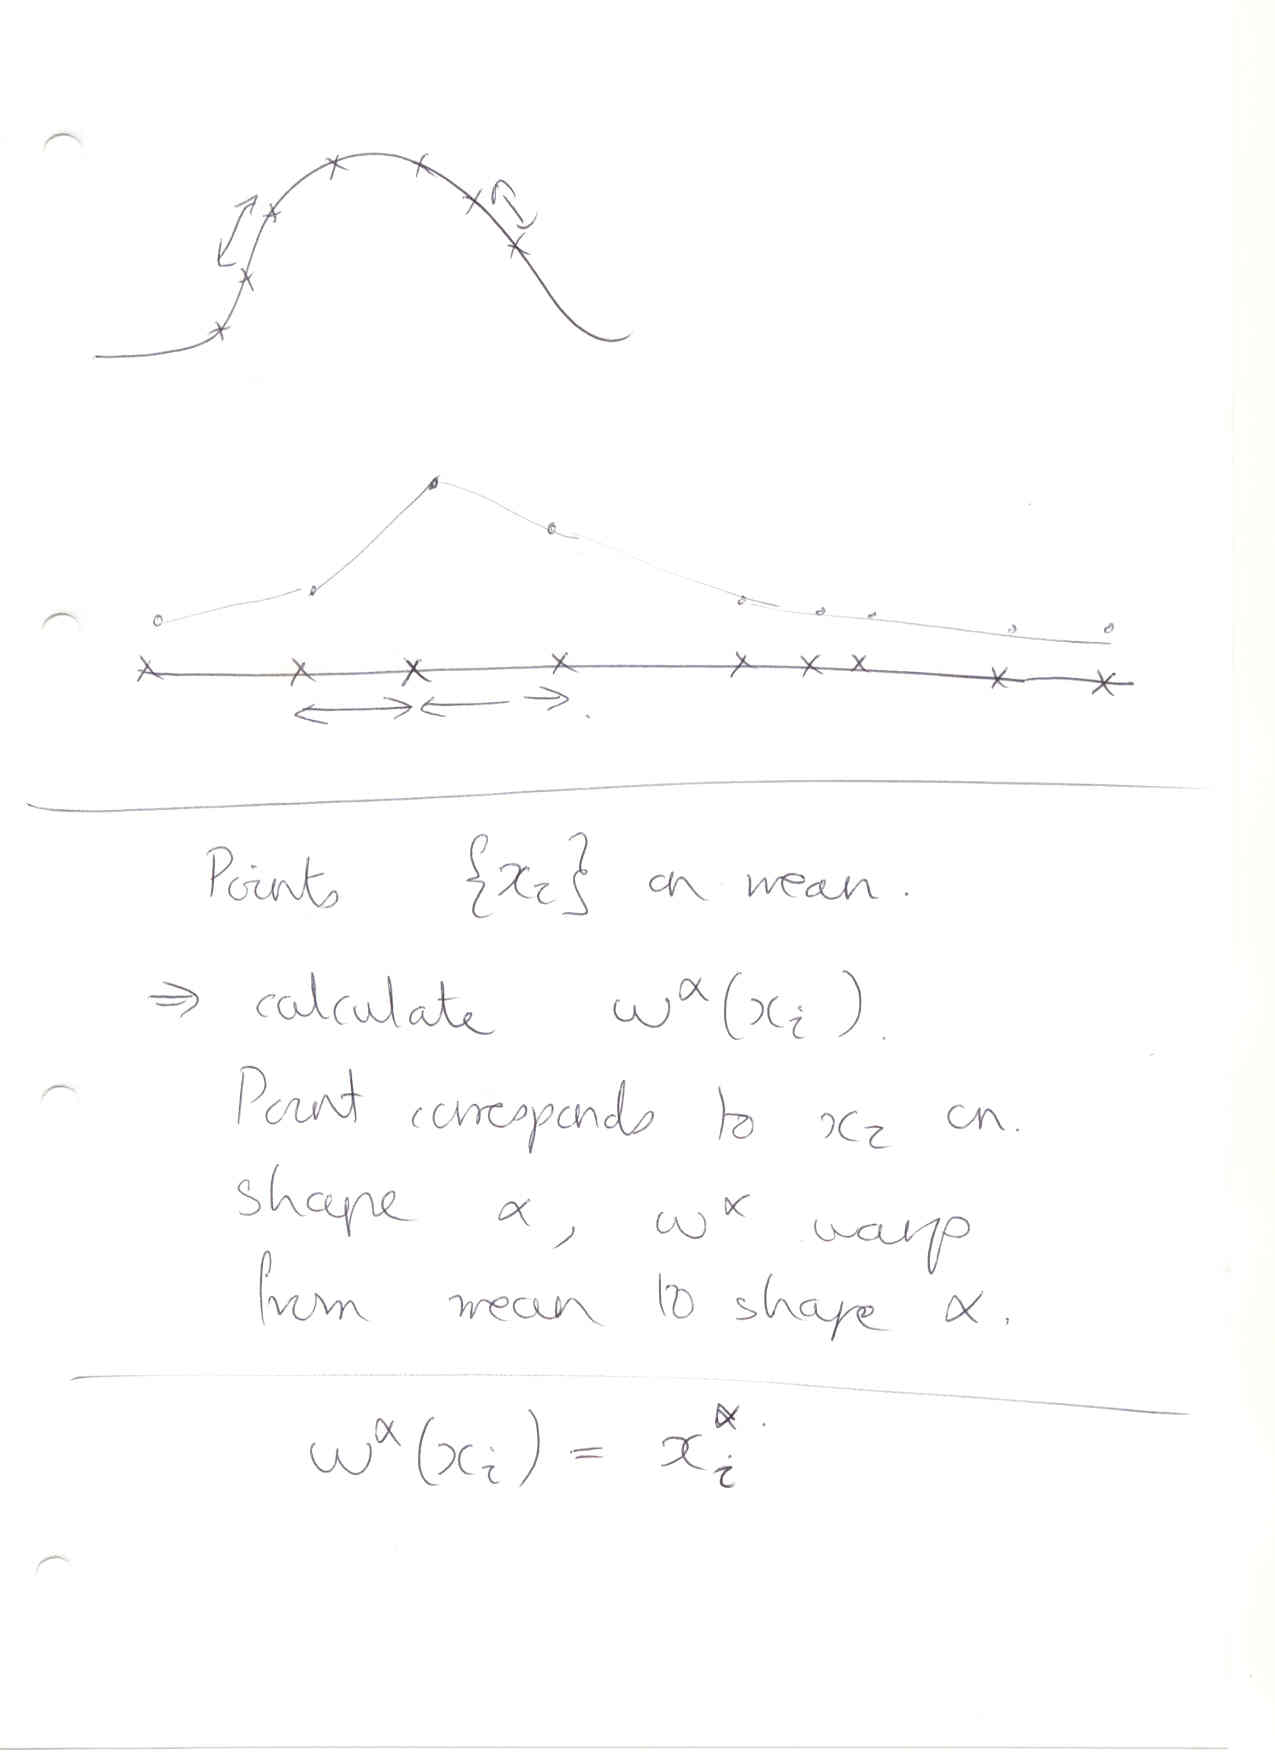 Points {x_i} on mean.
⇒ calculate ω^α(x_i).
Point corresponds to x_i on.
shape α, ω^α warp
from mean to shape α.
ω^α(x_i) = x_i^α.